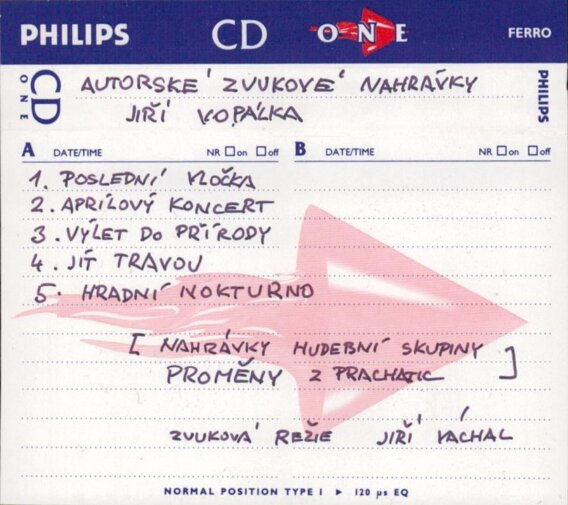 PHILIPS CD ONE FERRO
CD ONE AUTORSKÉ ZVUKOVÉ NAHRÁVKY PHILIPS
JIŘÍ VOPÁLKA
A DATE/TIME NR on off B DATE/TIME NR on off
1. POSLEDNÍ VLOČKA
2. APRÍLOVÝ KONCERT
3. VÝLET DO PŘÍRODY
4. JÍT TRAVOU
5. HRADNÍ NOKTURNO
[ NAHRÁVKY HUDEBNÍ SKUPINY
PROMĚNY Z PRACHATIC ]
ZVUKOVÁ REŽIE JIŘÍ VÁCHAL
NORMAL POSITION TYPE I ► 120 µs EQ